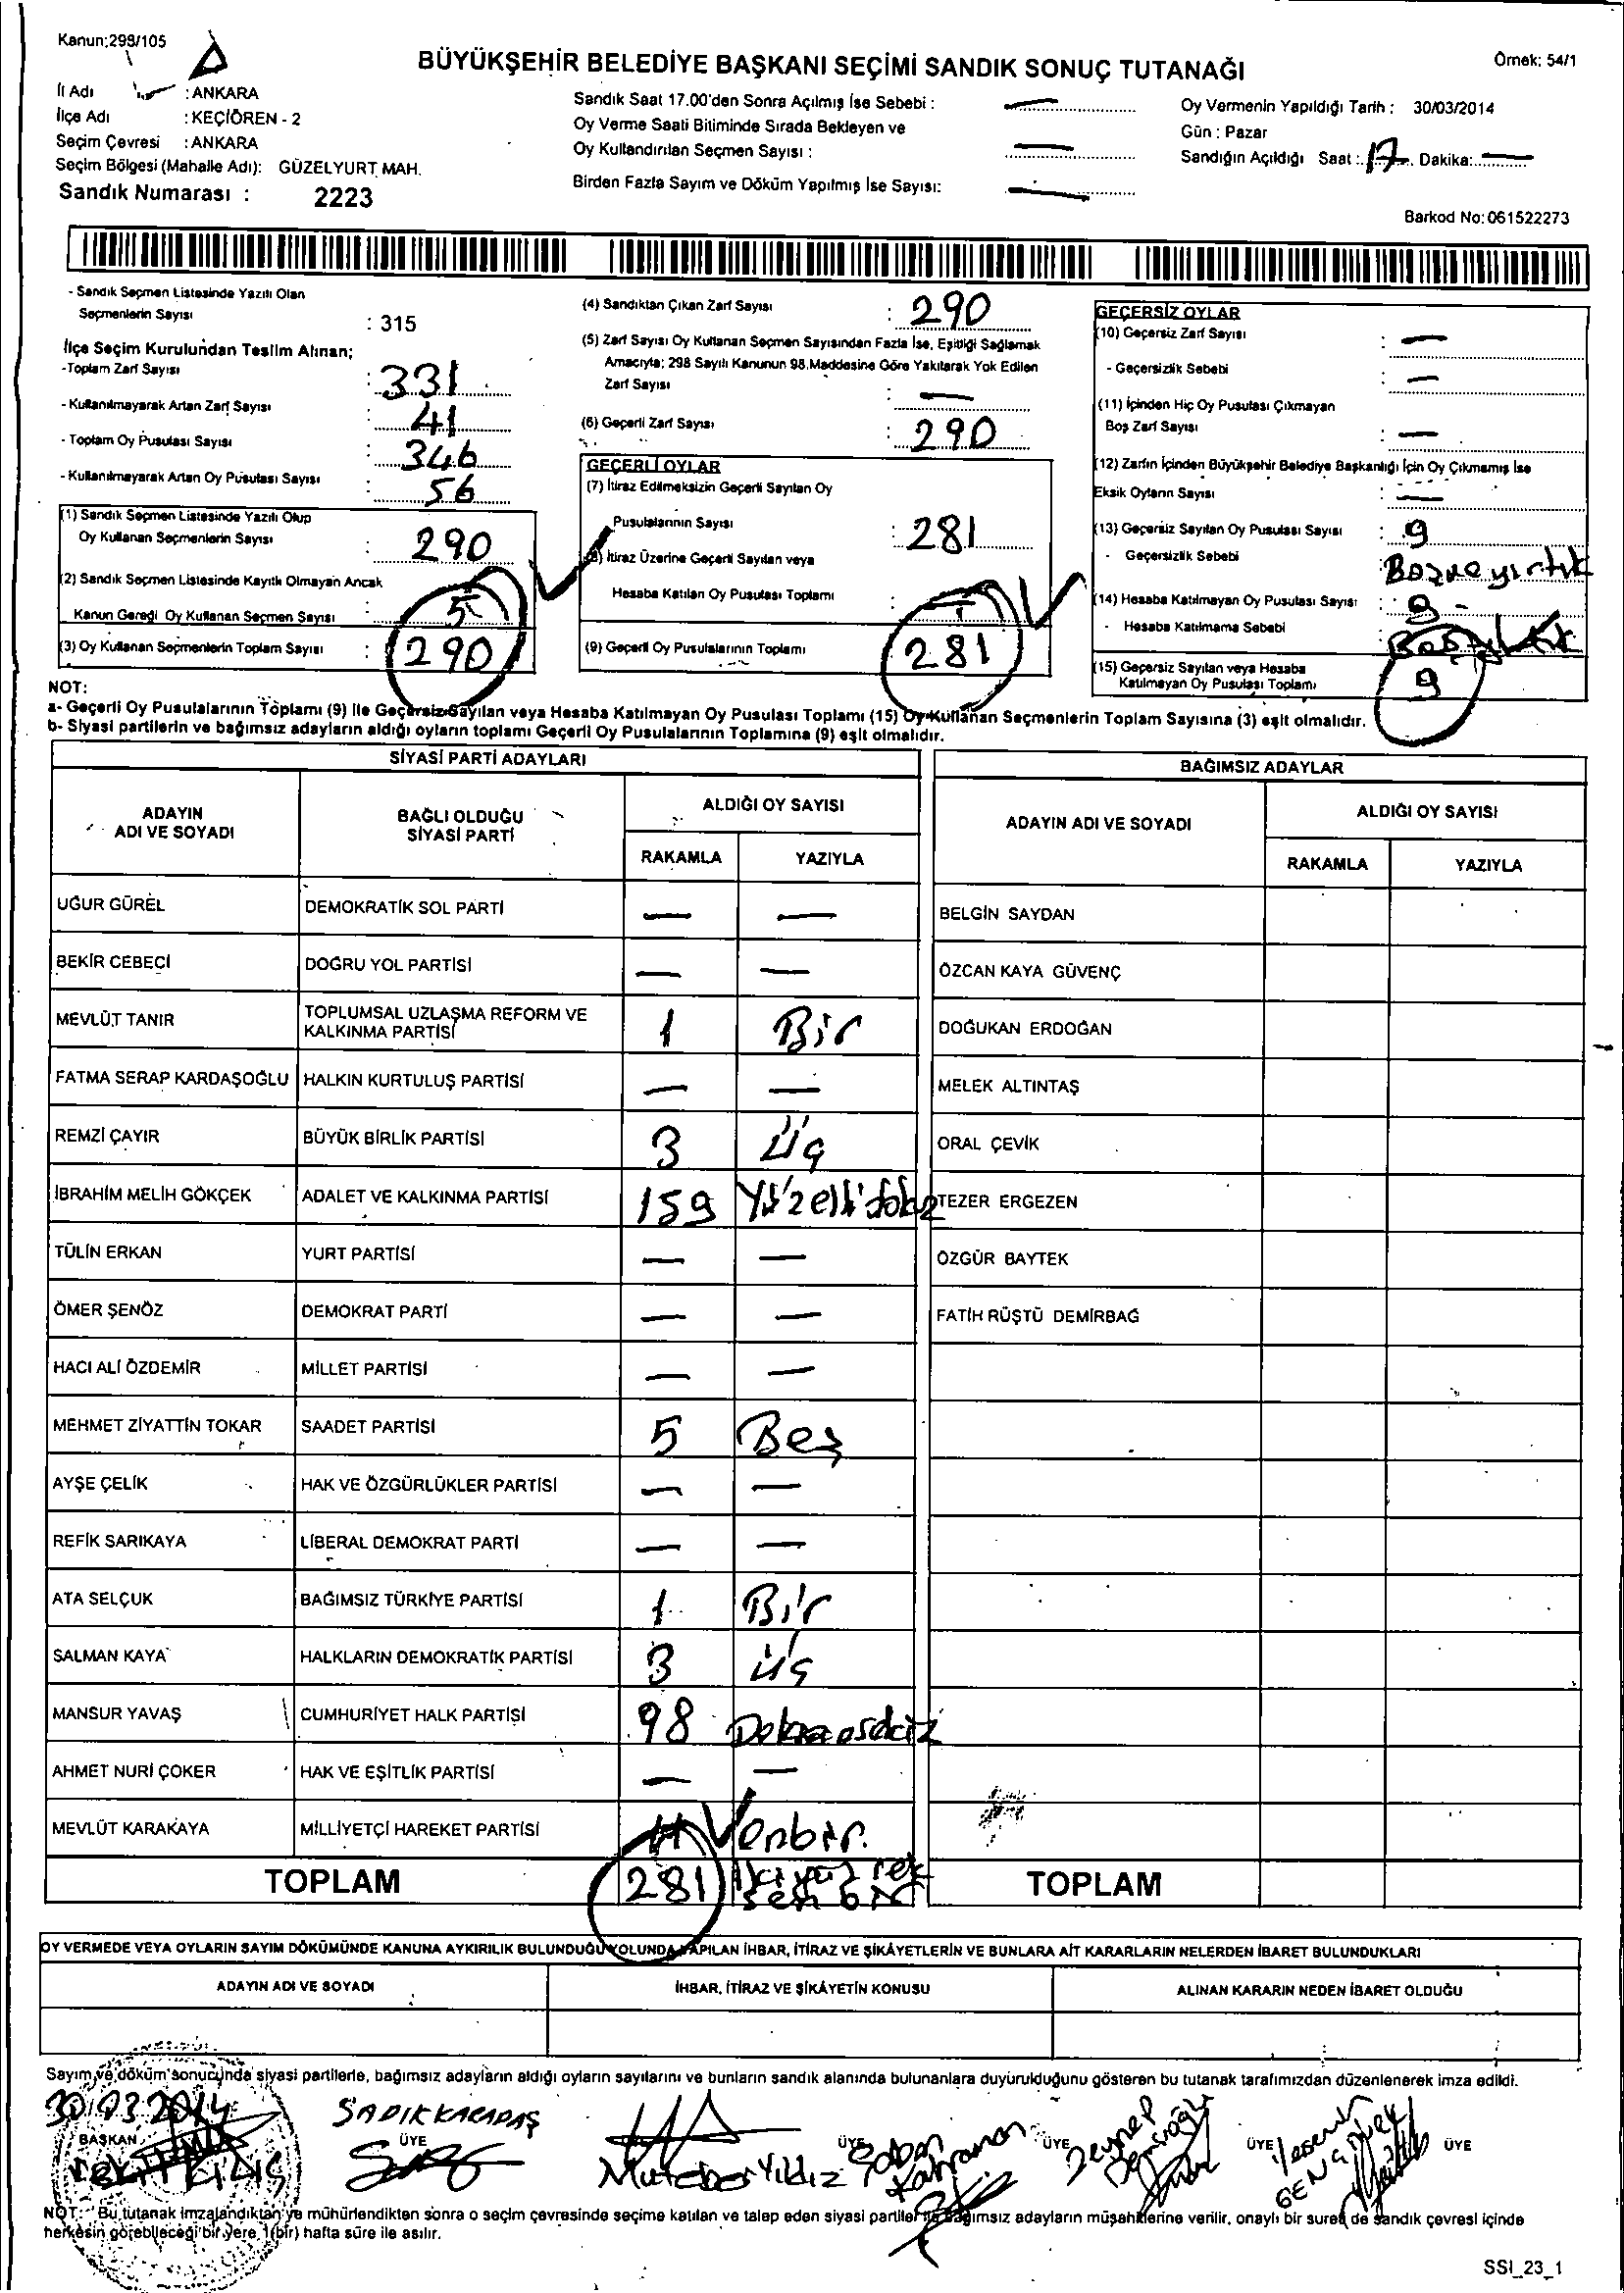 Kanun:298/105
BÜYÜKŞEHİR BELEDİYE BAŞKANI SEÇİMİ SANDIK SONUÇ TUTANAĞI
Örnek: 54/1
İl Adı : ANKARA
İlçe Adı : KEÇİÖREN - 2
Seçim Çevresi : ANKARA
Seçim Bölgesi (Mahalle Adı): GÜZELYURT MAH.
Sandık Numarası : 2223
Sandık Saat 17.00'den Sonra Açılmış İse Sebebi : —
Oy Verme Saati Bitiminde Sırada Bekleyen ve
Oy Kullandırılan Seçmen Sayısı : —
Birden Fazla Sayım ve Döküm Yapılmış İse Sayısı: —
Oy Vermenin Yapıldığı Tarih : 30/03/2014
Gün : Pazar
Sandığın Açıldığı Saat : 17 Dakika: —
Barkod No: 061522273
- Sandık Seçmen Listesinde Yazılı Olan
Seçmenlerin Sayısı : 315
İlçe Seçim Kurulundan Teslim Alınan;
-Toplam Zarf Sayısı : 331
- Kullanılmayarak Artan Zarf Sayısı : 41
- Toplam Oy Pusulası Sayısı : 346
- Kullanılmayarak Artan Oy Pusulası Sayısı : 56
(1) Sandık Seçmen Listesinde Yazılı Olup
Oy Kullanan Seçmenlerin Sayısı : 290
(2) Sandık Seçmen Listesinde Kayıtlı Olmayan Ancak
Kanun Gereği Oy Kullanan Seçmen Sayısı :
(3) Oy Kullanan Seçmenlerin Toplam Sayısı : 290
(4) Sandıktan Çıkan Zarf Sayısı : 290
(5) Zarf Sayısı Oy Kullanan Seçmen Sayısından Fazla İse, Eşitliği Sağlamak
Amacıyla; 298 Sayılı Kanunun 98.Maddesine Göre Yakılarak Yok Edilen
Zarf Sayısı : —
(6) Geçerli Zarf Sayısı : 290
GEÇERLİ OYLAR
(7) İtiraz Edilmeksizin Geçerli Sayılan Oy
Pusulalarının Sayısı : 281
(8) İtiraz Üzerine Geçerli Sayılan veya
Hesaba Katılan Oy Pusulası Toplamı :
(9) Geçerli Oy Pusulalarının Toplamı : 281
GEÇERSİZ OYLAR
(10) Geçersiz Zarf Sayısı : —
- Geçersizlik Sebebi : —
(11) İçinden Hiç Oy Pusulası Çıkmayan
Boş Zarf Sayısı : —
(12) Zarfın İçinden Büyükşehir Belediye Başkanlığı İçin Oy Çıkmamış İse
Eksik Oyların Sayısı : —
(13) Geçersiz Sayılan Oy Pusulası Sayısı : 9
- Geçersizlik Sebebi : yırtık
(14) Hesaba Katılmayan Oy Pusulası Sayısı : 9 -
- Hesaba Katılmama Sebebi :
(15) Geçersiz Sayılan veya Hesaba
Katılmayan Oy Pusulası Toplamı 9
NOT:
a- Geçerli Oy Pusulalarının Toplamı (9) ile Geçersiz Sayılan veya Hesaba Katılmayan Oy Pusulası Toplamı (15) Oy Kullanan Seçmenlerin Toplam Sayısına (3) eşit olmalıdır.
b- Siyasi partilerin ve bağımsız adayların aldığı oyların toplamı Geçerli Oy Pusulalarının Toplamına (9) eşit olmalıdır.
SİYASİ PARTİ ADAYLARI
ADAYIN ADI VE SOYADI BAĞLI OLDUĞU SİYASİ PARTİ ALDIĞI OY SAYISI
RAKAMLA YAZIYLA
UĞUR GÜREL DEMOKRATİK SOL PARTİ — —
BEKİR CEBECİ DOĞRU YOL PARTİSİ — —
MEVLÜT TANIR TOPLUMSAL UZLAŞMA REFORM VE KALKINMA PARTİSİ 1 Bir
FATMA SERAP KARDAŞOĞLU HALKIN KURTULUŞ PARTİSİ — —
REMZİ ÇAYIR BÜYÜK BİRLİK PARTİSİ 3 Üç
İBRAHİM MELİH GÖKÇEK ADALET VE KALKINMA PARTİSİ 159 Yüzellidokuz
TÜLİN ERKAN YURT PARTİSİ — —
ÖMER ŞENÖZ DEMOKRAT PARTİ — —
HACI ALİ ÖZDEMİR MİLLET PARTİSİ — —
MEHMET ZİYATTİN TOKAR SAADET PARTİSİ 5 Beş
AYŞE ÇELİK HAK VE ÖZGÜRLÜKLER PARTİSİ — —
REFİK SARIKAYA LİBERAL DEMOKRAT PARTİ — —
ATA SELÇUK BAĞIMSIZ TÜRKİYE PARTİSİ 1 Bir
SALMAN KAYA HALKLARIN DEMOKRATİK PARTİSİ 3 üç
MANSUR YAVAŞ CUMHURİYET HALK PARTİSİ 98
AHMET NURİ ÇOKER HAK VE EŞİTLİK PARTİSİ — —
MEVLÜT KARAKAYA MİLLİYETÇİ HAREKET PARTİSİ 11 onbir.
TOPLAM 281 ikiyüz sek sen bir
BAĞIMSIZ ADAYLAR
ADAYIN ADI VE SOYADI ALDIĞI OY SAYISI
RAKAMLA YAZIYLA
BELGİN SAYDAN
ÖZCAN KAYA GÜVENÇ
DOĞUKAN ERDOĞAN
MELEK ALTINTAŞ
ORAL ÇEVİK
TEZER ERGEZEN
ÖZGÜR BAYTEK
FATİH RÜŞTÜ DEMİRBAĞ
TOPLAM
OY VERMEDE VEYA OYLARIN SAYIM DÖKÜMÜNDE KANUNA AYKIRILIK BULUNDUĞU YOLUNDA YAPILAN İHBAR, İTİRAZ VE ŞİKÂYETLERİN VE BUNLARA AİT KARARLARIN NELERDEN İBARET BULUNDUKLARI
ADAYIN ADI VE SOYADI İHBAR, İTİRAZ VE ŞİKÂYETİN KONUSU ALINAN KARARIN NEDEN İBARET OLDUĞU
Sayım ve döküm sonucunda siyasi partilerle, bağımsız adayların aldığı oyların sayılarını ve bunların sandık alanında bulunanlara duyurulduğunu gösteren bu tutanak tarafımızdan düzenlenerek imza edildi.
30.03.2014
BAŞKAN ÜYE ÜYE ÜYE ÜYE ÜYE
SADIK KARADAŞ
Muteber Yıldız
Şaban Kahraman
Zeynep
NOT: Bu tutanak imzalandıktan ve mühürlendikten sonra o seçim çevresinde seçime katılan ve talep eden siyasi partiler ile bağımsız adayların müşahitlerine verilir, onaylı bir sureti de sandık çevresi içinde
herkesin görebileceği bir yere 1(bir) hafta süre ile asılır.
SSI_23_1